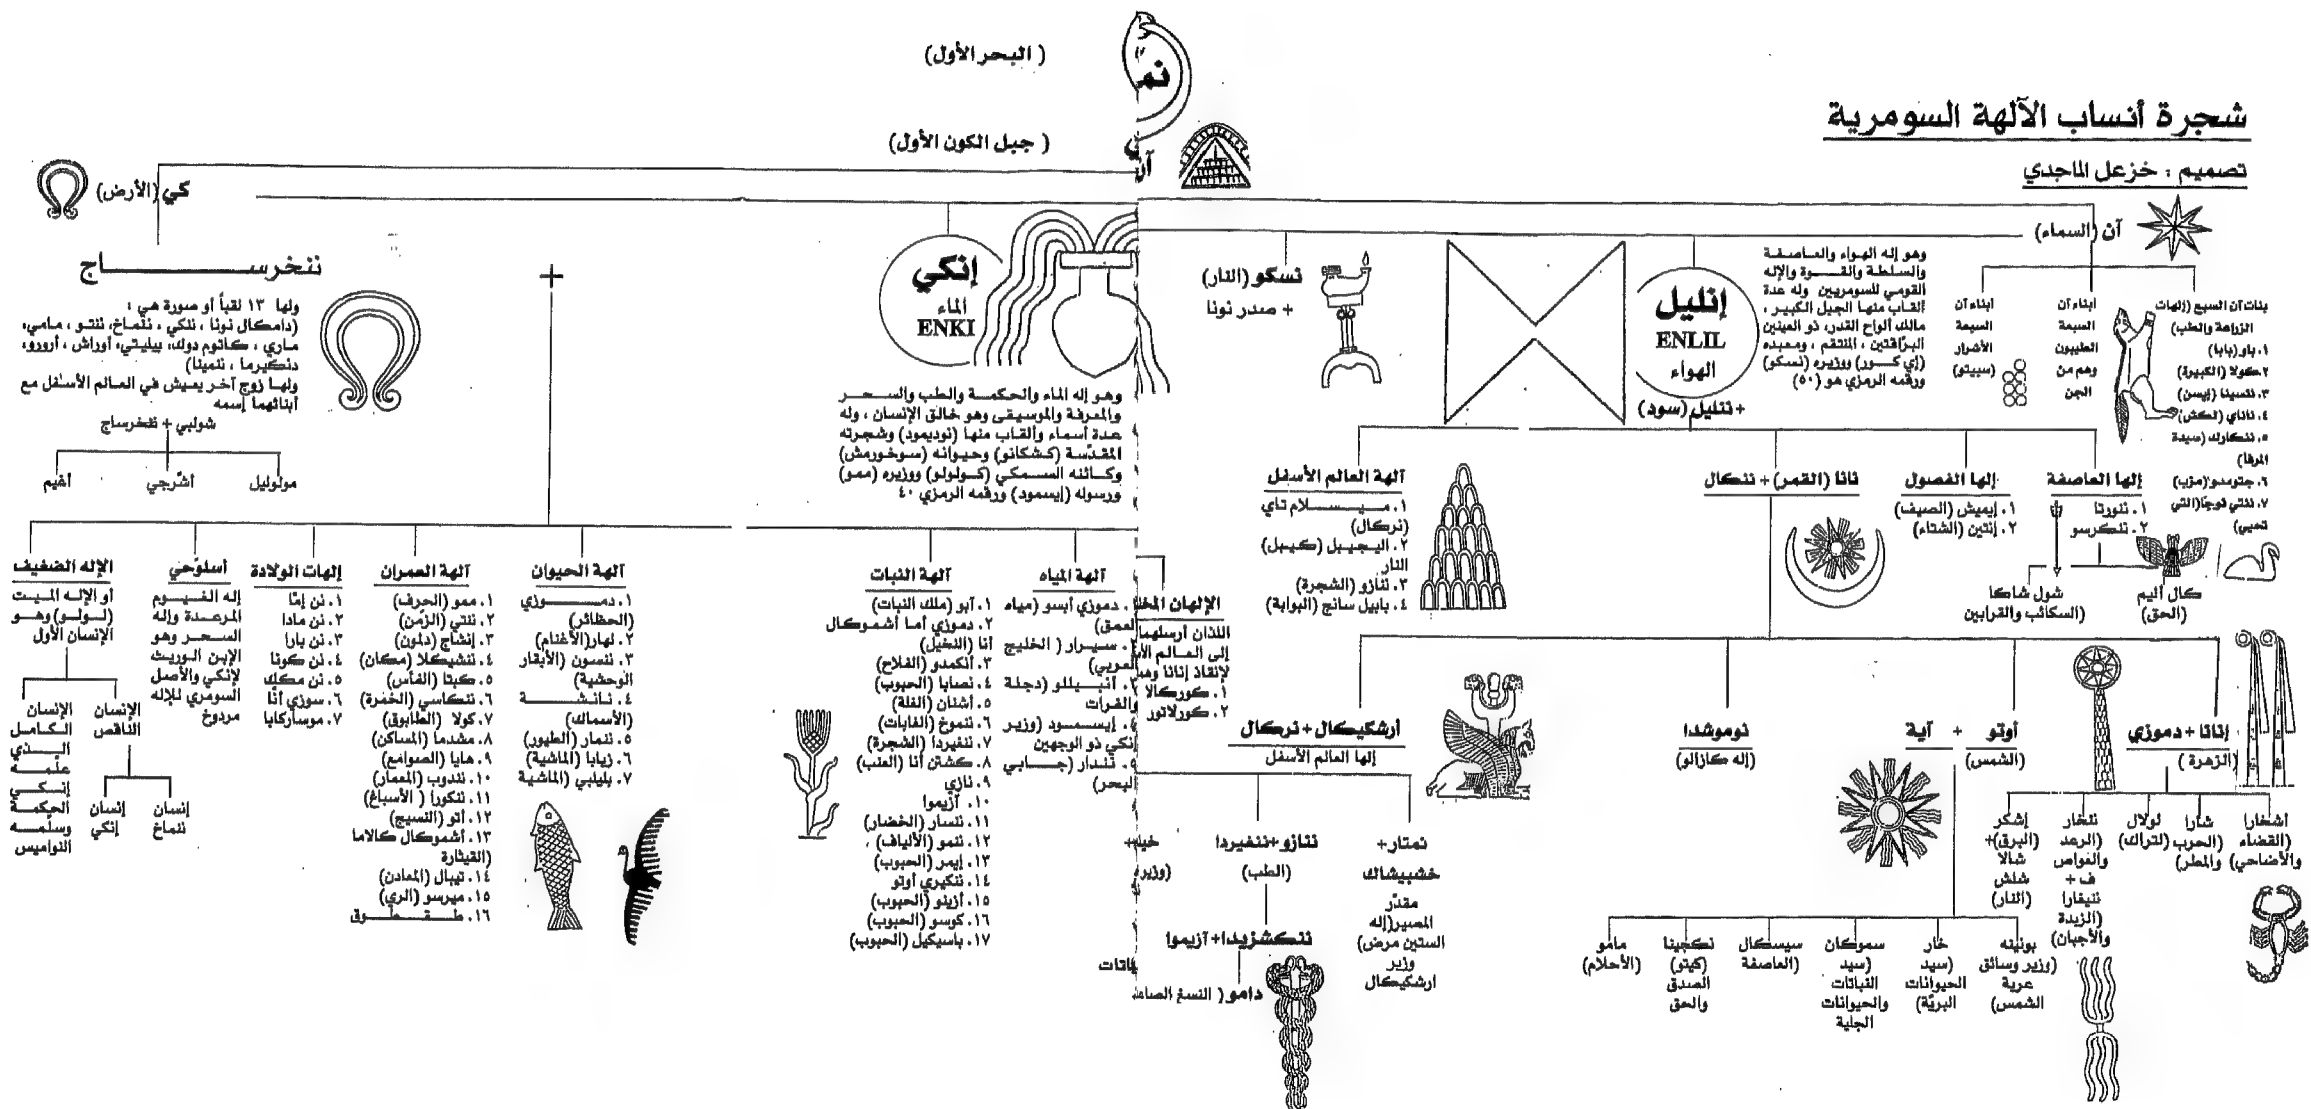 شجرة أنساب الآلهة السومرية
تصميم : خزعل الماجدي
( البحر الأول)
( جبل الكون الأول)
آن (السماء)
كي (الأرض)
بنات آن السبع (إلهات
الزراعة والطب)
١. باو (بابا)
٢. كولا (الكبيرة)
٣. ننسينا (إيسن)
٤. ناناي (لكش)
٥. ننكارك (سيدة
المرفأ)
٦. جتومدو (مزب)
٧. ننتي نوجا (التي
تحيي)
أبناء آن
السبعة
الطيبون
وهم من
الجن
أبناء آن
السبعة
الأشرار
(سبيتو)
وهو إله الهواء والعاصفة
والسلطة والقوة والإله
القومي للسومريين وله عدة
ألقاب منها الجبل الكبير ،
مالك ألواح القدر، ذو العينين
البراقتين ، المنتقم ، ومعبده
(إي كور) ووزيره (نسكو)
ورقمه الرمزي هو (٥٠)
إنليل
ENLIL
الهواء
+ننليل (سود)
نسكو (النار)
+ صدر نونا
إلها العاصفة
١. ننورتا
٢. ننكرسو
كال أليم
(الحق)
شول شاكا
(السكائب والقرابين
إلها الفصول
١. إيميش (الصيف)
٢. إنتين (الشتاء)
نانا (القمر) + ننكال
آلهة العالم الأسفل
١. ميسلام تاي
(نركال)
٢. اليجيبل (كيبل)
النار
٣. ننازو (الشجرة)
٤. بابيل سانج (البوابة)
إنانا + دموزي
(الزهرة )
أوتو + آية
(الشمس)
نوموشدا
(إله كازالو)
أرشكيكال + نركال
إلها العالم الأسفل
اشخارا
(القضاء
والأضاحي)
شارا
(الحرب
والمطر)
لولال
(لتراك)
ننخار
(الرعد
والعواصف
ف +
ننيفارا
(الزبدة
والأجبان)
إشكر
(البرق)+
شالا
شلش
(النار)
بونينه
(وزير وسائق
عربة
الشمس)
خار
(سيد
الحيوانات
البرية)
سموكان
(سيد
النباتات
والحيوانات
الجلية
سيسكال
(العاصفة
نكجينا
(كيتو)
الصدق
والحق
مامو
(الأحلام)
نمتار+
خشبيشاك
مقدر
المصير(إله
الستين مرض)
وزير
ارشكيكال
ننازو+ننغيردا
(الطب)
ننكشزيدا+آزيموا
دامو ( النسغ الصاعد
إنكي
الماء
ENKI
وهو إله الماء والحكمة والطب والسحر
والمعرفة والموسيقى وهو خالق الإنسان ، وله
عدة أسماء وألقاب منها (نوديمود) وشجرته
المقدسة (كشكانو) وحيوانه (سوخورمش)
وكائنه السمكي (كولولو) ووزيره (ممو)
ورسوله (إيسمود) ورقمه الرمزي ٤٠
+
ننخرساج
ولها ١٣ لقباً أو صورة هي :
(دامكال نونا ، ننكي ، ننماخ، ننتو ، مامي،
ماري ، كاتوم دوك، بيليتي، أوراش ، أرورو،
دنكيرما ، ننمينا)
ولها زوج آخر يعيش في العالم الأسفل مع
أبنائهما إسمه
شولبي + ننخرساج
مولوليل
أشرجي
أغيم
اللذان أرسلهما
إلى العالم
لإنقاذ إنانا
١. كوركالا
٢. كورلاتور
آلهة المياه
دموزي أبسو (مياه
العمق)
سيرار ( الخليج
العربي)
أنبيللو (دجلة
والفرات
٤. إيسمود (وزير
إنكي ذو الوجهين
٥. نندار (جابي
البحر)
آلهة النبات
١. آبو (ملك النبات)
٢. دموزي أما أشموكال
أنا (النخيل)
٣. أنكمدو (الفلاح)
٤. نصابا (الحبوب)
٥. أشنان (الغلة)
٦. ننموخ (الغابات)
٧. ننغيردا (الشجرة)
٨. كشتن أنا (العنب)
٩. نازي
١٠. آزيموا
١١. ننسار (الخضار)
١٢. ننمو (الألياف)
١٣. إيمر (الحبوب)
١٤. ننكيري أوتو
١٥. أزينو (الحبوب)
١٦. كوسو (الحبوب)
١٧. باسيكيل (الحبوب)
آلهة الحيوان
١. دموزي
(الحظائر)
٢. لهار(الأغنام)
٣. ننسون (الأبقار
الوحشية)
٤. نانشة
(الأسماك)
٥. ننمار (الطيور)
٦. زيابا (الماشية)
٧. بليلبي (الماشية
آلهة العمران
١. ممو (الحرف)
٢. ننتي (الزمن)
٣. إنشاج (دلمون)
٤. ننشيكلا (مكان)
٥. كبتا (الفأس)
٦. ننكاسي (الخمرة)
٧. كولا (الطابوق)
٨. مشدما (المساكن)
٩. هايا (الصوامع)
١٠. نندوب (المعمار)
١١. ننكورا ( الأصباغ)
١٢. أتو (النسيج)
١٣. أشموكال كالاما
(القيثارة
١٤. تيبال (المعادن)
١٥. ميرسو (الري)
إلهات الولادة
١. نن إمّا
٢. نن مادا
٣. نن بارا
٤. نن كونا
٥. نن مكك
٦. سوزي أنّا
٧. موساركابا
أسلوحي
إله الغيوم
المرعدة وإله
السحر وهو
الإبن الوريث
لإنكي والأصل
السومري للإله
مردوخ
الإله الضعيف
أو الإله الميت
(لولو) وهو
الإنسان الأول
الإنسان
الناقص
إنسان
ننماخ
إنسان
إنكي
الإنسان
الكامل
الذي
علّمه
إنكي
الحكمة
وسلّمه
النواميس